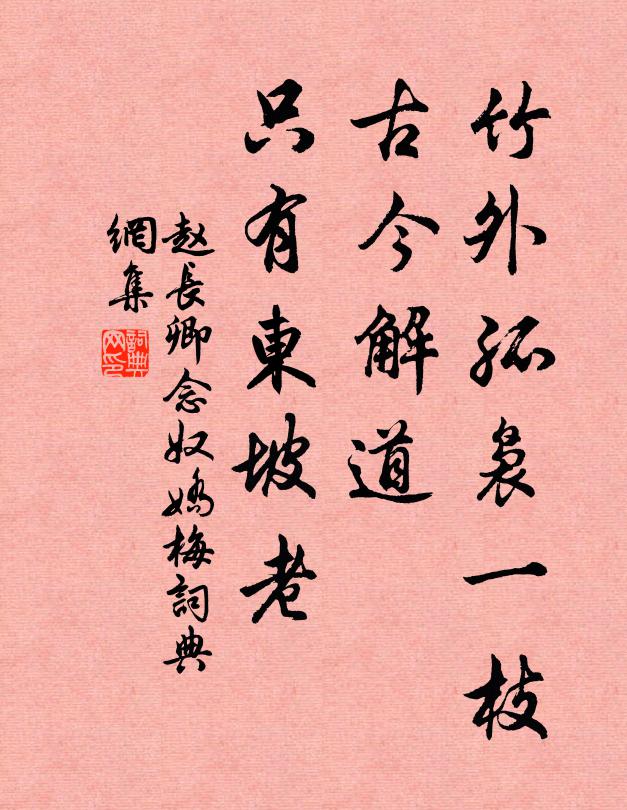 竹外孤袅一枝
古今解道
只有東坡老
赵長卿念奴嬌梅詞典
網集
詞典
网印